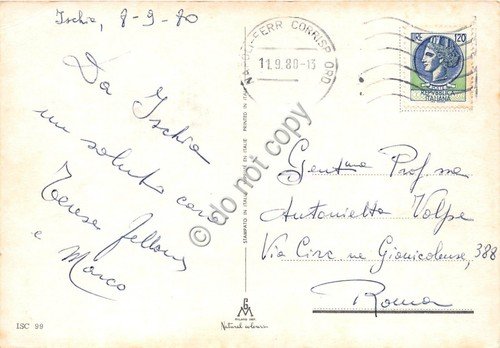 Ischia, 8-9-80
Da Ischia
un saluto caro
Teresa
e Marco
NAPOLI-FERR. CORRISP. ORD
11.9.80-13
LIRE 120
REPUBBLICA
ITALIANA
Gent.ma Prof.ssa
Antonietta Volpe
Via Circ ne Gianicolense, 388
Roma
STAMPATO IN ITALIA
PRINTED IN ITALY
do not copy
ISC 98
Natural colours